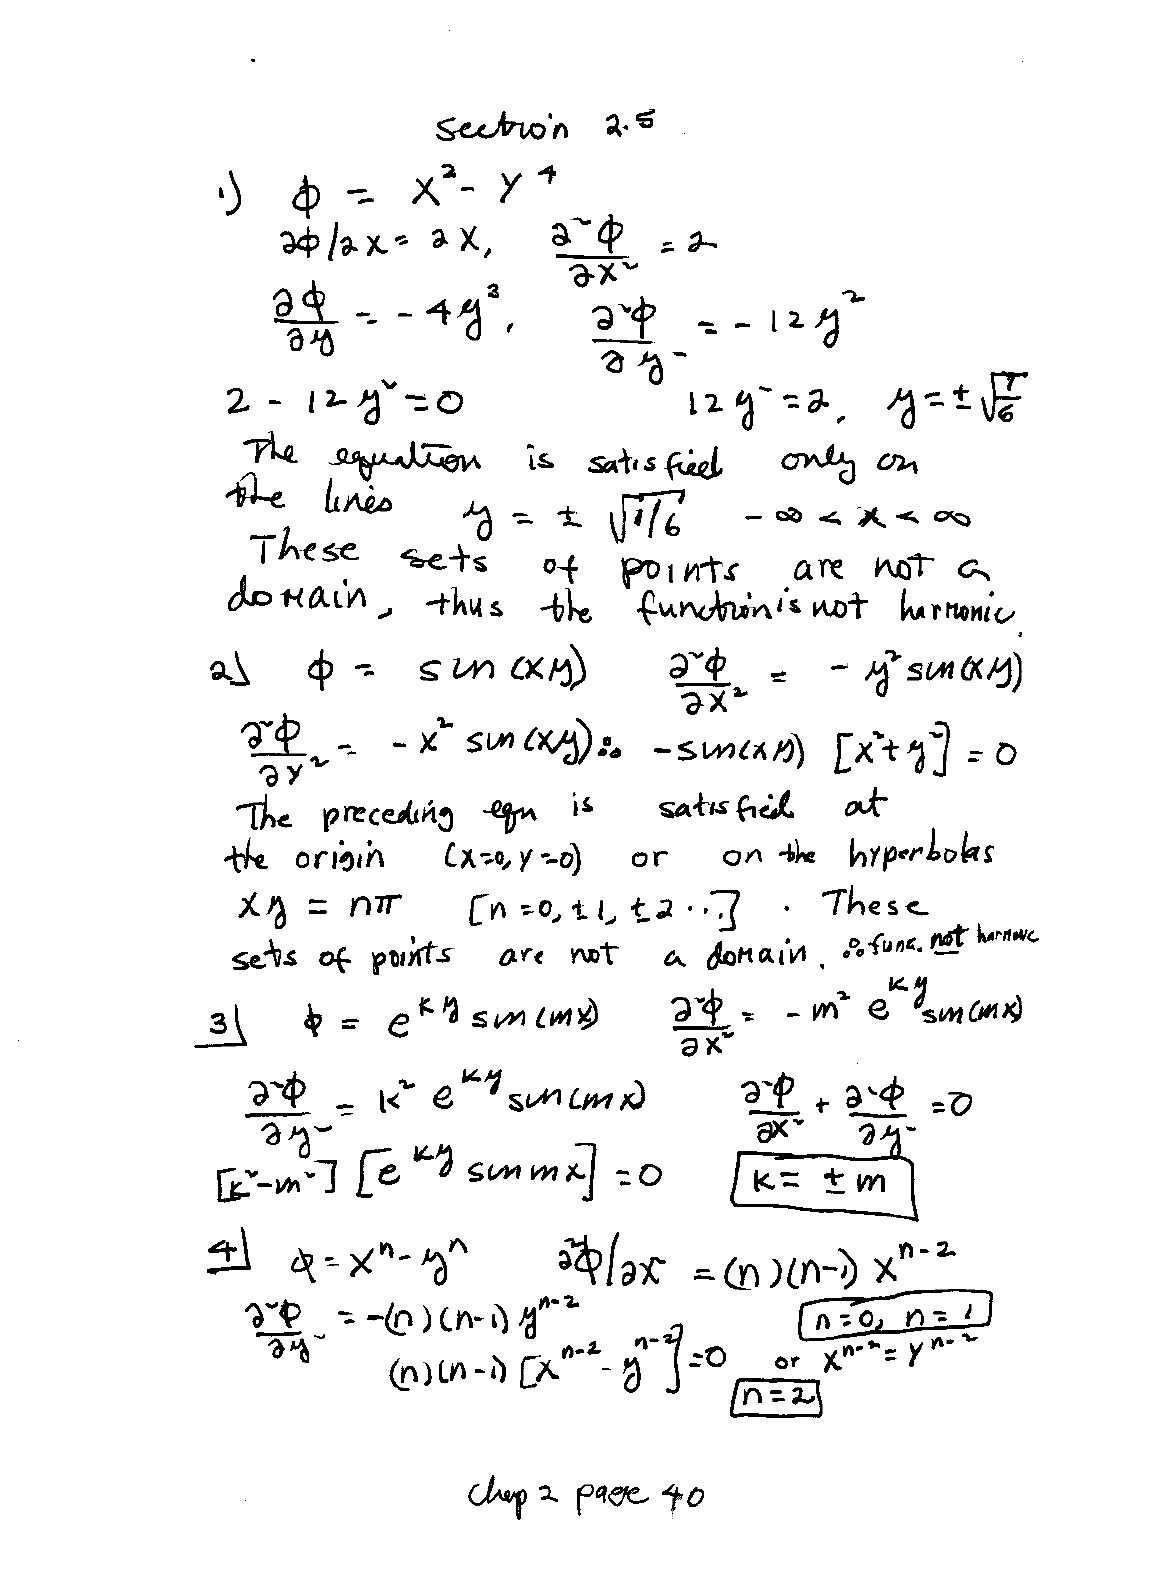 Section 2.5
1) φ = x² - y⁴
∂φ/∂x = 2x, ∂²φ/∂x² = 2
∂φ/∂y = -4y³, ∂²φ/∂y² = -12y²
2 - 12y² = 0 12y² = 2, y = ±√(1/6)
The equation is satisfied only on
the lines y = ± √1/6 -∞ < x < ∞
These sets of points are not a
domain, thus the function is not harmonic.
2) φ = sin(xy) ∂²φ/∂x² = -y² sin(xy)
∂²φ/∂y² = -x² sin(xy) ∴ -sin(xy) [x²+y²] = 0
The preceding eqn is satisfied at
the origin (x=0, y=0) or on the hyperbolas
xy = nπ [n=0, ±1, ±2...] . These
sets of points are not a domain, ∴ func. not harmonic
3) φ = e^{ky} sin(mx) ∂²φ/∂x² = -m² e^{ky} sin(mx)
∂²φ/∂y² = k² e^{ky} sin(mx) ∂²φ/∂x² + ∂²φ/∂y² = 0
[k²-m²] [e^{ky} sin mx] = 0 k = ±m
4) φ = xⁿ - yⁿ ∂²φ/∂x = (n)(n-1) x^{n-2}
∂²φ/∂y² = -(n)(n-1) y^{n-2} n=0, n=1
(n)(n-1) [x^{n-2} - y^{n-2}] = 0 or x^{n-2} = y^{n-2}
n=2
Chap 2 page 40